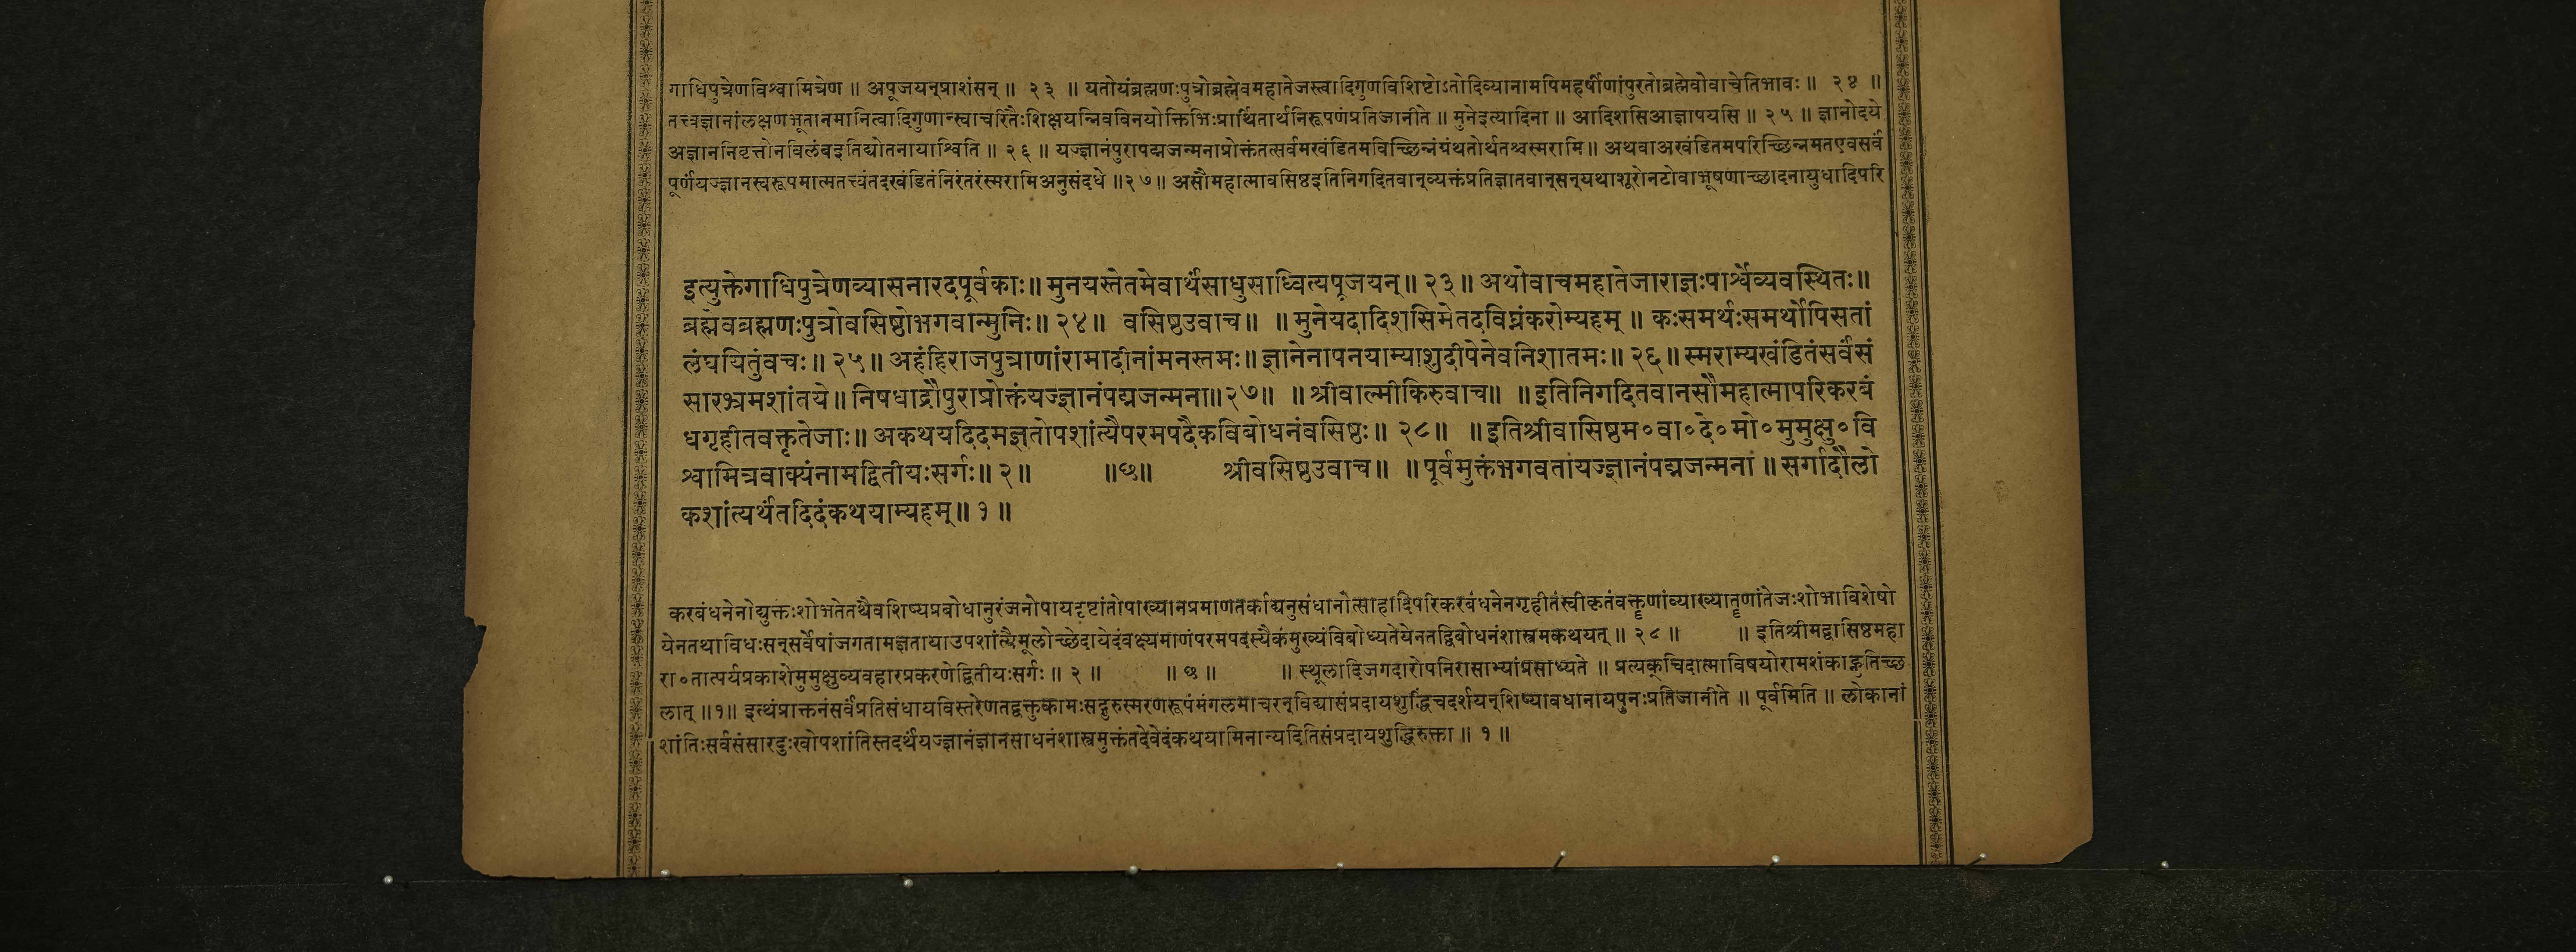 गाधिपुत्रेणविश्वामित्रेण ॥ अपूजयन्प्राशंसन् ॥ २३ ॥ यतोयंब्रह्मणःपुत्रोब्रह्मेवमहातेजस्त्वादिगुणविशिष्टोऽतोदिव्यानामपिमहर्षीणांपुरतोब्रह्मेवोवाचेतिभावः ॥ २४ ॥
तत्त्वज्ञानांलक्षणभूतानमानित्वादिगुणान्स्वाचरितैःशिक्षयन्निवविनयोक्तिभिःप्रार्थितार्थनिरूपणंप्रतिजानीते ॥ मुनेइत्यादिना ॥ आदिशसिआज्ञापयसि ॥ २५ ॥ ज्ञानोदये
अज्ञाननिवृत्तोनविलंबइतिद्योतनायाश्विति ॥ २६ ॥ यज्ज्ञानंपुरापद्मजन्मनाप्रोक्तंतत्सर्वमखंडितमविच्छिन्नंग्रंथतोर्थतश्चस्मरामि॥ अथवाअखंडितमपरिच्छिन्नमतएवसर्वं
पूर्णंयज्ज्ञानस्वरूपमात्मतत्त्वंतदखंडितंनिरंतरंस्मरामिअनुसंदधे ॥२७॥ असौमहात्मावसिष्ठइतिनिगदितवान्व्यक्तंप्रतिज्ञातवान्सन्यथाशूरोनटोवाभूषणाच्छादनायुधादिपरि
इत्युक्तेगाधिपुत्रेणव्यासनारदपूर्वकाः॥ मुनयस्तेतमेवार्थंसाधुसाध्वित्यपूजयन्॥ २३॥ अथोवाचमहातेजाराज्ञःपार्श्वेव्यवस्थितः॥
ब्रह्मेवब्रह्मणःपुत्रोवसिष्ठोभगवान्मुनिः॥ २४॥ वसिष्ठउवाच॥ ॥मुनेयदादिशसिमेतदविघ्नंकरोम्यहम् ॥ कःसमर्थःसमर्थोपिसतां
लंघयितुंवचः॥ २५॥ अहंहिराजपुत्राणांरामादीनांमनस्तमः॥ ज्ञानेनापनयाम्याशुदीपेनेवनिशातमः॥ २६॥ स्मराम्यखंडितंसर्वंसं
सारभ्रमशांतये॥ निषधाद्रौपुराप्रोक्तंयज्ज्ञानंपद्मजन्मना॥२७॥ ॥श्रीवाल्मीकिरुवाच॥ ॥इतिनिगदितवानसौमहात्मापरिकरबं
धगृहीतवक्तृतेजाः॥ अकथयदिदमज्ञतोपशांत्यैपरमपदैकविबोधनंवसिष्ठः॥ २८॥ ॥इतिश्रीवासिष्ठम॰वा॰दे॰मो॰मुमुक्षु॰वि
श्वामित्रवाक्यंनामद्वितीयःसर्गः॥ २॥ ॥छ॥ श्रीवसिष्ठउवाच॥ ॥पूर्वमुक्तंभगवतायज्ज्ञानंपद्मजन्मना ॥ सर्गादौलो
कशांत्यर्थंतदिदंकथयाम्यहम्॥ १॥
करबंधनेनोद्युक्तःशोभतेतथैवशिष्यप्रबोधानुरंजनोपायदृष्टांतोपाख्यानप्रमाणतर्काद्यनुसंधानोत्साहादिपरिकरबंधनेनगृहीतंस्वीकृतंवक्तॄणांव्याख्यातॄणांतेजःशोभाविशेषो
येनतथाविधःसन्सर्वेषांजगतामज्ञतायाउपशांत्यैमूलोच्छेदायेदंवक्ष्यमाणंपरमपदस्यैकंमुख्यंविबोध्यतेयेनतद्विबोधनंशास्त्रमकथयत् ॥ २८ ॥ ॥ इतिश्रीमद्वासिष्ठमहा
रा॰तात्पर्यप्रकाशेमुमुक्षुव्यवहारप्रकरणेद्वितीयःसर्गः ॥ २ ॥ ॥ छ ॥ ॥ स्थूलादिजगदारोपनिरासाभ्यांप्रसाध्यते ॥ प्रत्यक्चिदात्माविषयोरामशंकाकृतिच्छ
लात् ॥१॥ इत्थंप्राक्तनंसर्वंप्रतिसंधायविस्तरेणतद्वक्तुकामःसद्गुरुस्मरणरूपंमंगलमाचरन्विद्यासंप्रदायशुद्धिंचदर्शयन्शिष्यावधानायपुनःप्रतिजानीते ॥ पूर्वमिति ॥ लोकानां
शांतिःसर्वसंसारदुःखोपशांतिस्तदर्थंयज्ज्ञानंज्ञानसाधनंशास्त्रमुक्तंतदेवेदंकथयामिनान्यदितिसंप्रदायशुद्धिरुक्ता ॥ १ ॥